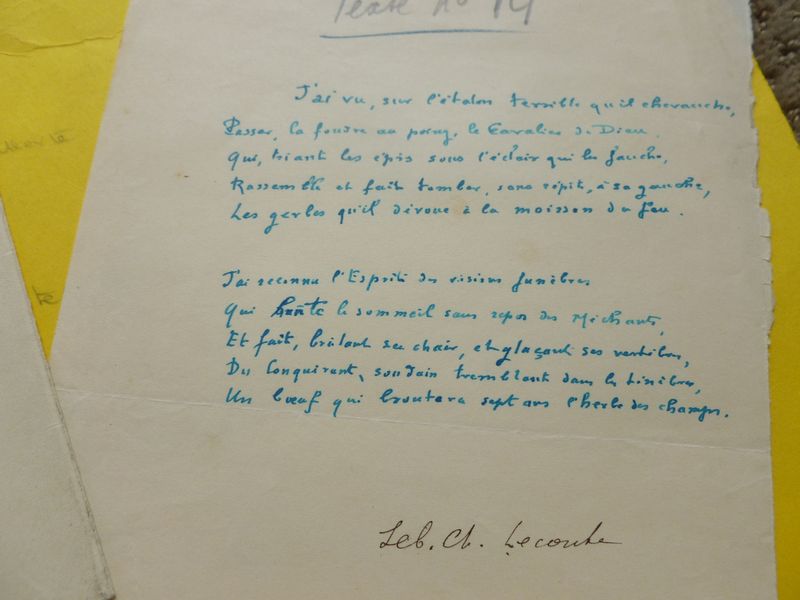 Texte no 14
J'ai vu, sur l'étalon terrible qu'il chevauche,
Passer, la foudre au poing, le Cavalier de Dieu
Qui, triant les épis sous l'éclair qui les fauche,
Rassemble et fait tomber, sans répit, à sa gauche,
Les gerbes qu'il dévoue à la moisson du feu.
J'ai reconnu l'Esprit des visions funèbres
Qui hante le sommeil sans repos des Méchants,
Et fait, brûlant sa chair, et glaçant ses vertèbres,
Du Conquérant, soudain tremblant dans les ténèbres,
Un bœuf qui broutera sept ans l'herbe des champs.
Seb. Ch. Leconte
te